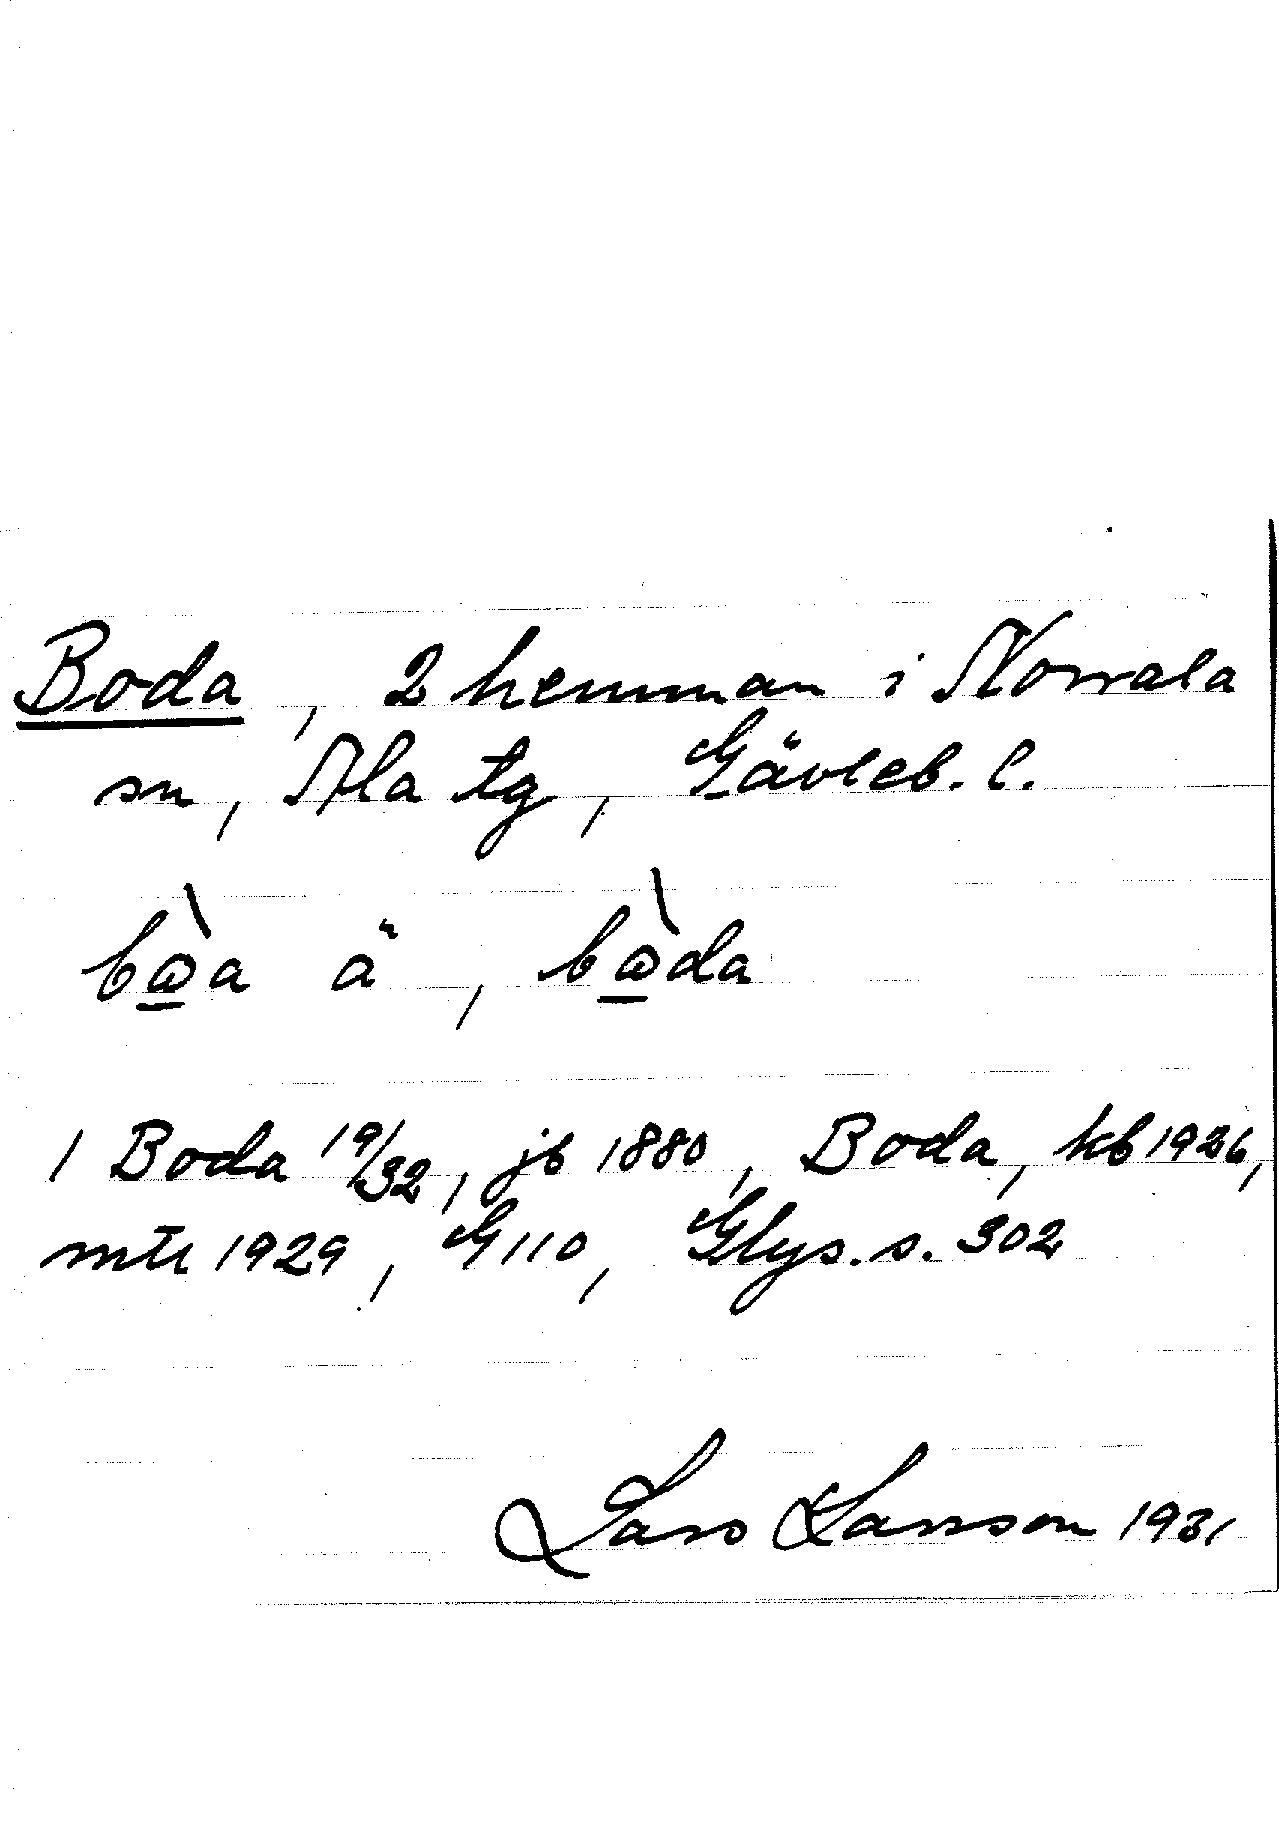 Boda, 2 hemman i Norrala
sn, Ala tg, Gävleb. l.
bɷ̀a ä, bɷ̀da
1 Boda 19/32, jb 1880, Boda, kb 1926,
mtl 1929, G110, Glys. s. 302
Lars Larsson 1931